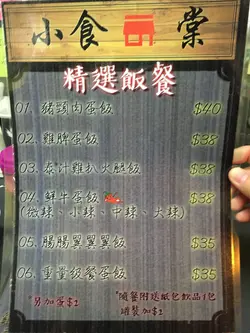 小食棠
精選飯餐
01. 豬頸肉蛋飯 $40
02. 雞脾蛋飯 $38
03. 泰汁雞扒火腿飯 $38
04. 鮮牛蛋飯 $38
(微辣、小辣、中辣、大辣)
05. 腸腸翼翼翼飯 $35
06. 重量級餐蛋飯 $35
*另加蛋$2
*隨餐附送紙包飲品1包
罐裝加$2